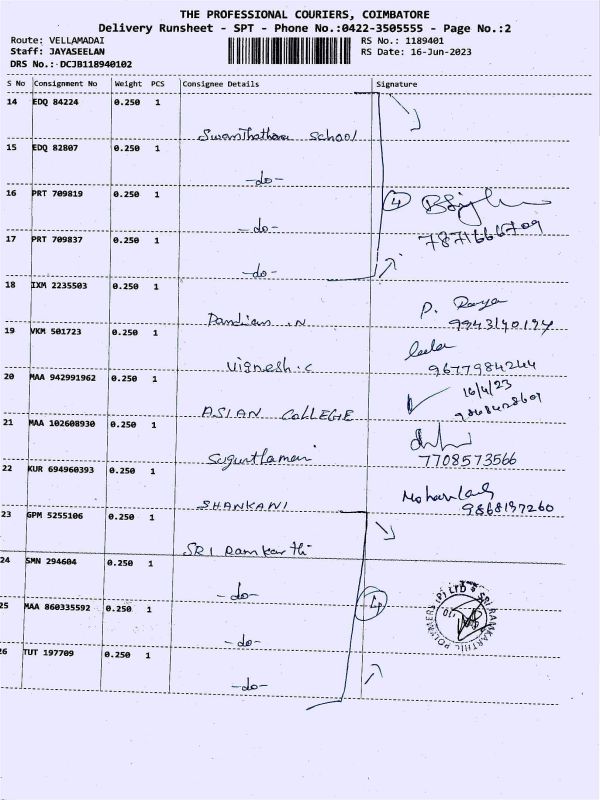 THE PROFESSIONAL COURIERS, COIMBATORE
Delivery Runsheet - SPT - Phone No.:0422-3505555 - Page No.:2
Route: VELLAMADAI RS No.: 1189401
Staff: JAYASEELAN RS Date: 16-Jun-2023
DRS No.: DCJB118940102
S No Consignment No Weight PCS Consignee Details Signature
14 EDQ 84224 0.250 1 School
15 EDQ 82807 0.250 1 -do-
16 PRT 709819 0.250 1 -do- 4
17 PRT 709837 0.250 1 -do- 7871666709
18 IXM 2235503 0.250 1 Pandian .N P.
19 VKM 501723 0.250 1 Vignesh.C 9677984244
20 MAA 942991962 0.250 1 ASIAN COLLEGE 16/4/23
21 MAA 102608930 0.250 1 7708573566
22 KUR 694960393 0.250 1 SHANKANI 9868197260
23 GPM 5255106 0.250 1 SRI Ramkarthi
24 SMN 294604 0.250 1 -do- 4
25 MAA 860335592 0.250 1 -do-
26 TUT 197709 0.250 1 -do-
SRI RAMKARTHIC POLYMERS (P) LTD